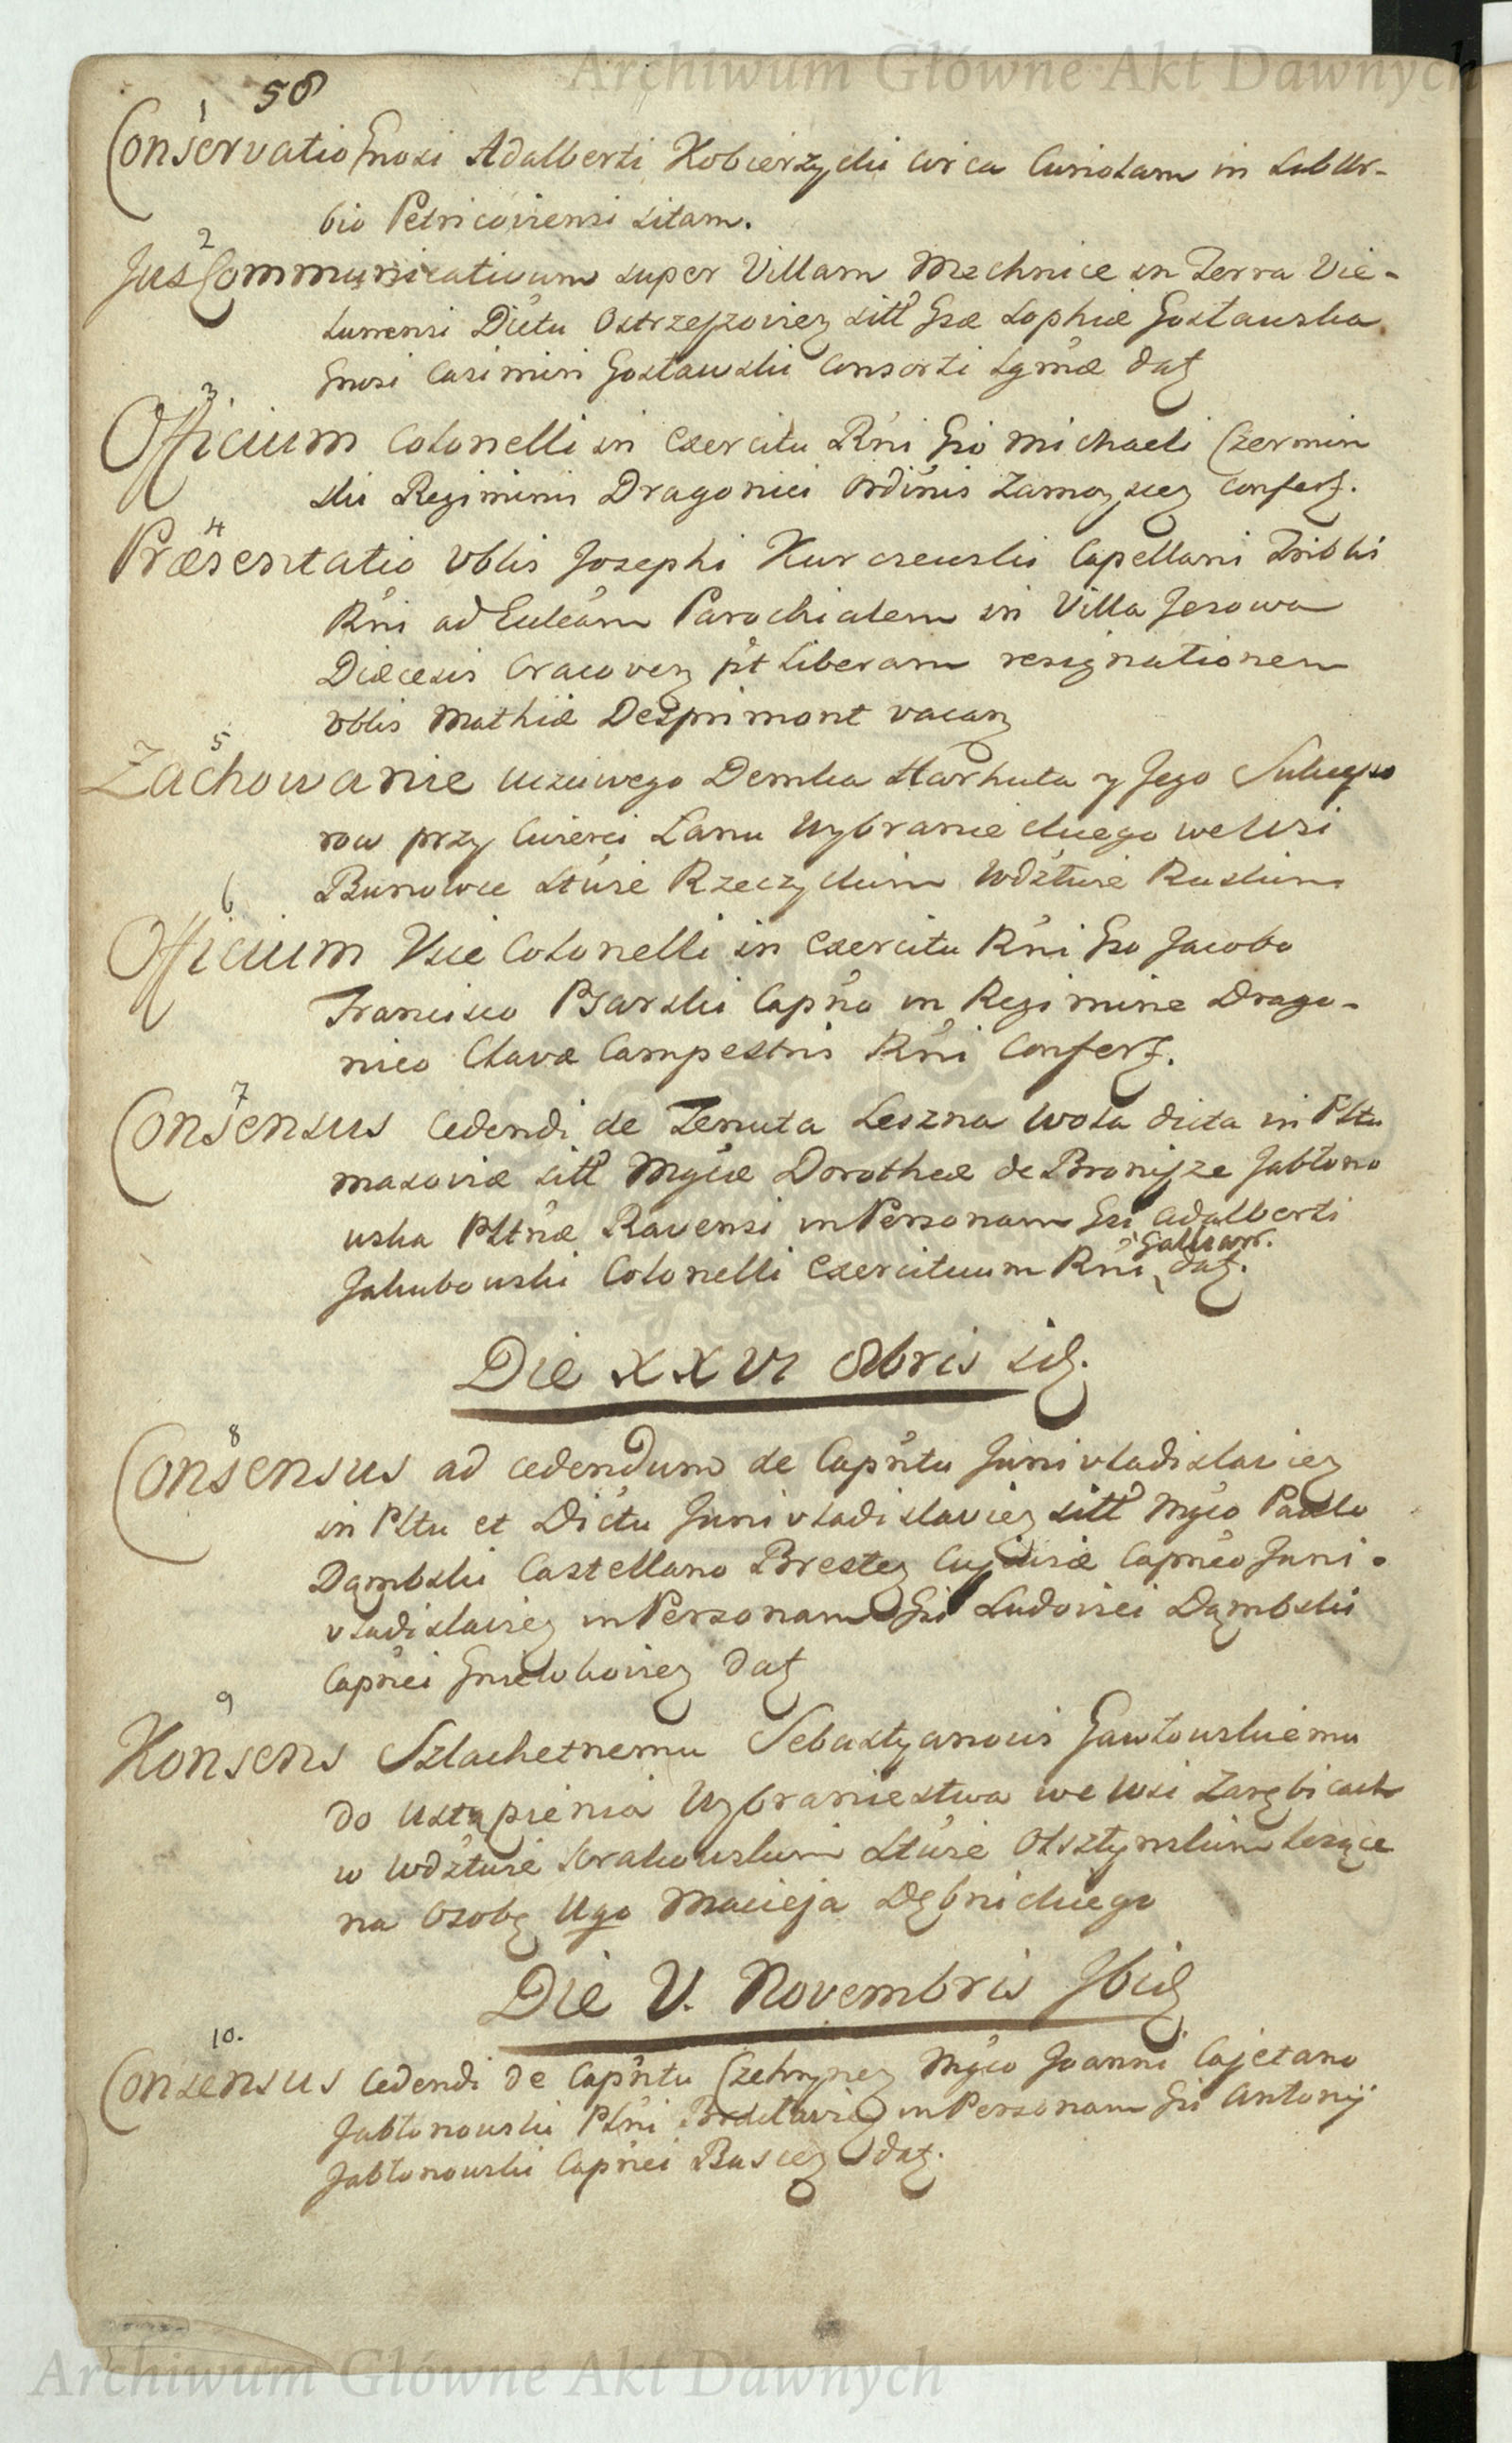 Archiwum Główne Akt Dawnych
58
1
Conservatio Gnosi Adalberti Kobierzycki circa Curiolam in Subur-
bio Petricoviensi sitam.
2
Jus Communicativum super Villam Mechnice in Terra Vie-
lunensi Dictu Ostrzeszovien sitt Gsæ Sophiæ Gostauska
Gnosi Casimiri Gostauski Consorti Lgmæ dat
3
Officium Colonelli in Exercitu Rni Gso Michaeli Czermin
ski Regiminis Dragonici Ordinis Zamoyscen confert.
4
Præsentatio Vblis Josephi Kurczeuski Capellani Tribls
Rni ad Eccleam Parochialem in Villa Jerowa
Diæcesis Cracovien pt liberam resignationem
Vblis Mathiæ Desprimont vacan
5
Zachowanie uczciwego Demka Harhuta y Jego Sukcesso
row przy cwierci Łanu Wybranieckiego we Wsi
Bunowce Stwie Rzeczyckim Wdztwie Ruskim
6
Officium Vice Colonelli in Exercitu Rni Gso Jacobo
Francisco Psarski Capno in Regimine Drago-
nico Clavæ Campestris Rni Confert.
7
Consensus Cedendi de Tenuta Leszna Wola dicta in Pltu
Masoviæ sitt Mgcæ Dorotheæ de Bronisze Jabłono
uska Pltnæ Ravensi in Personam Gsi Adalberti
Jakubouski Colonelli Exercituum Rni Galliarr. dat.
Die XXVI 8bris id.
8
Consensus ad cedendum de Capntu Junivladislavien
in Pltu et Dictu Junivladislavien sitt Mgco Paulo
Dąmbski Castellano Bresten Cujaviæ Capneo Juni-
vladislavien in Personam Gsi Ludovici Dąmbski
Capnei Gniewkovien dat
9
Konsens Szlachetnemu Sebastyanowi Gawłouskiemu
do ustąpienia Wybraniectwa we Wsi Zarębicach
w Wdztwie Krakouskim Stwie Olsztynskim leżące
na Osobę Ugo Macieja Dębnickiego
Die V. Novembris Ibid
10.
Consensus cedendi de Capntu Czehrynen Mgco Joanni Cajetano
Jabłonouski Plni Bracłavien in Personam Gsi Antonij
Jabłonouski Capnei Buscen dat.
Archiwum Główne Akt Dawnych